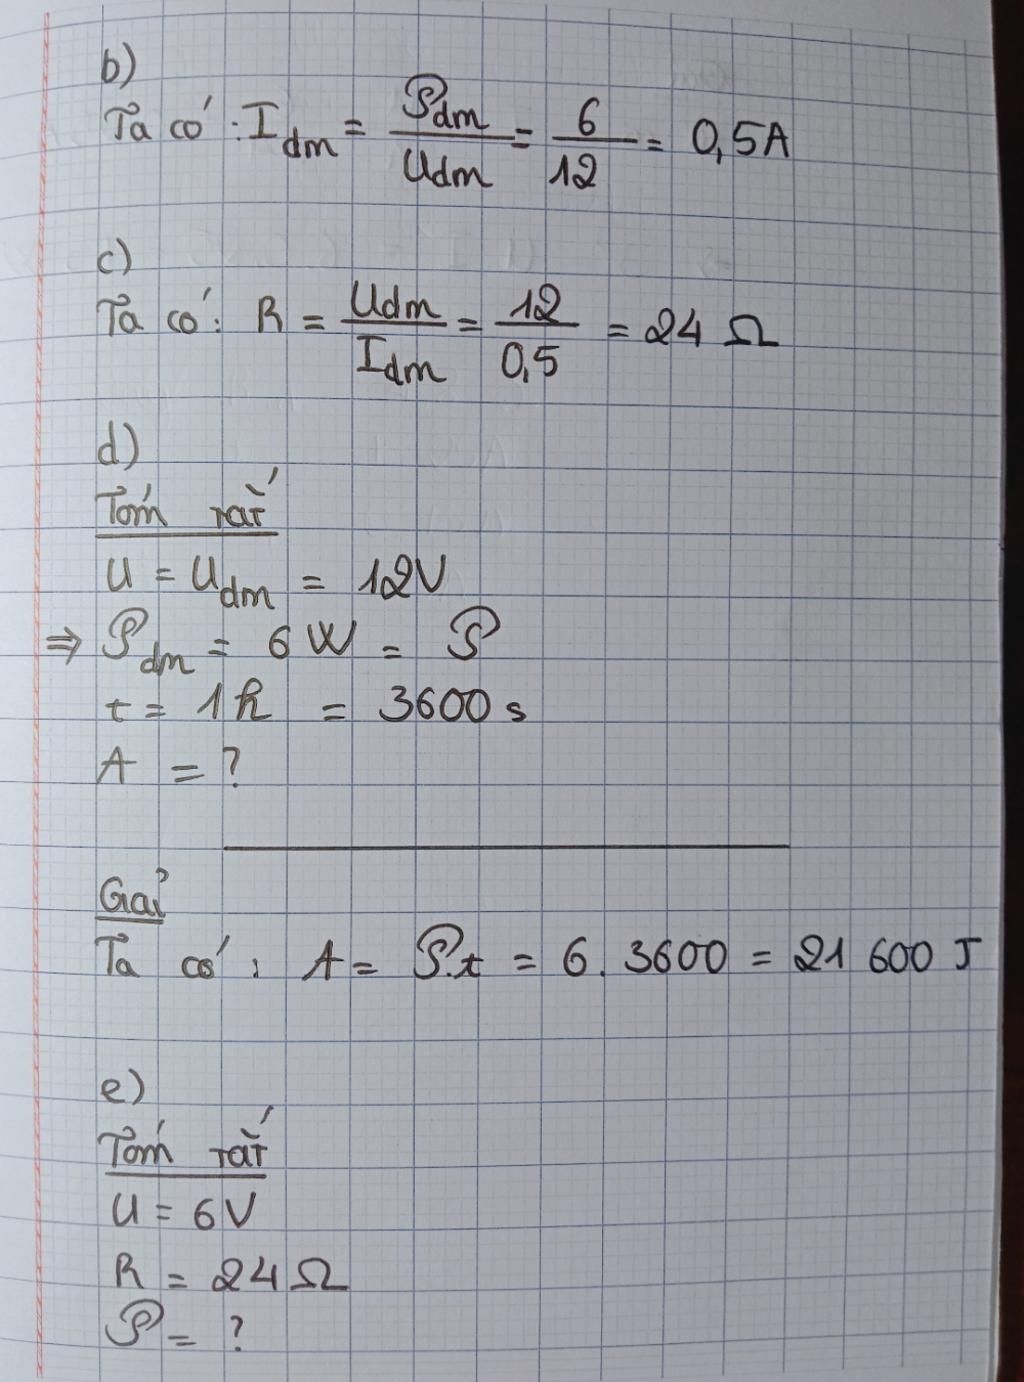 b)
Ta có: I_dm = 𝒫dm / Udm = 6 / 12 = 0,5A
c)
Ta có: R = Udm / Idm = 12 / 0,5 = 24 Ω
d)
Tóm tắt
U = U_dm = 12V
⇒ 𝒫_dm = 6 W = 𝒫
t = 1h = 3600 s
A = ?
Giải
Ta có: A = 𝒫.t = 6. 3600 = 21 600 J
e)
Tóm tắt
U = 6V
R = 24 Ω
𝒫 = ?